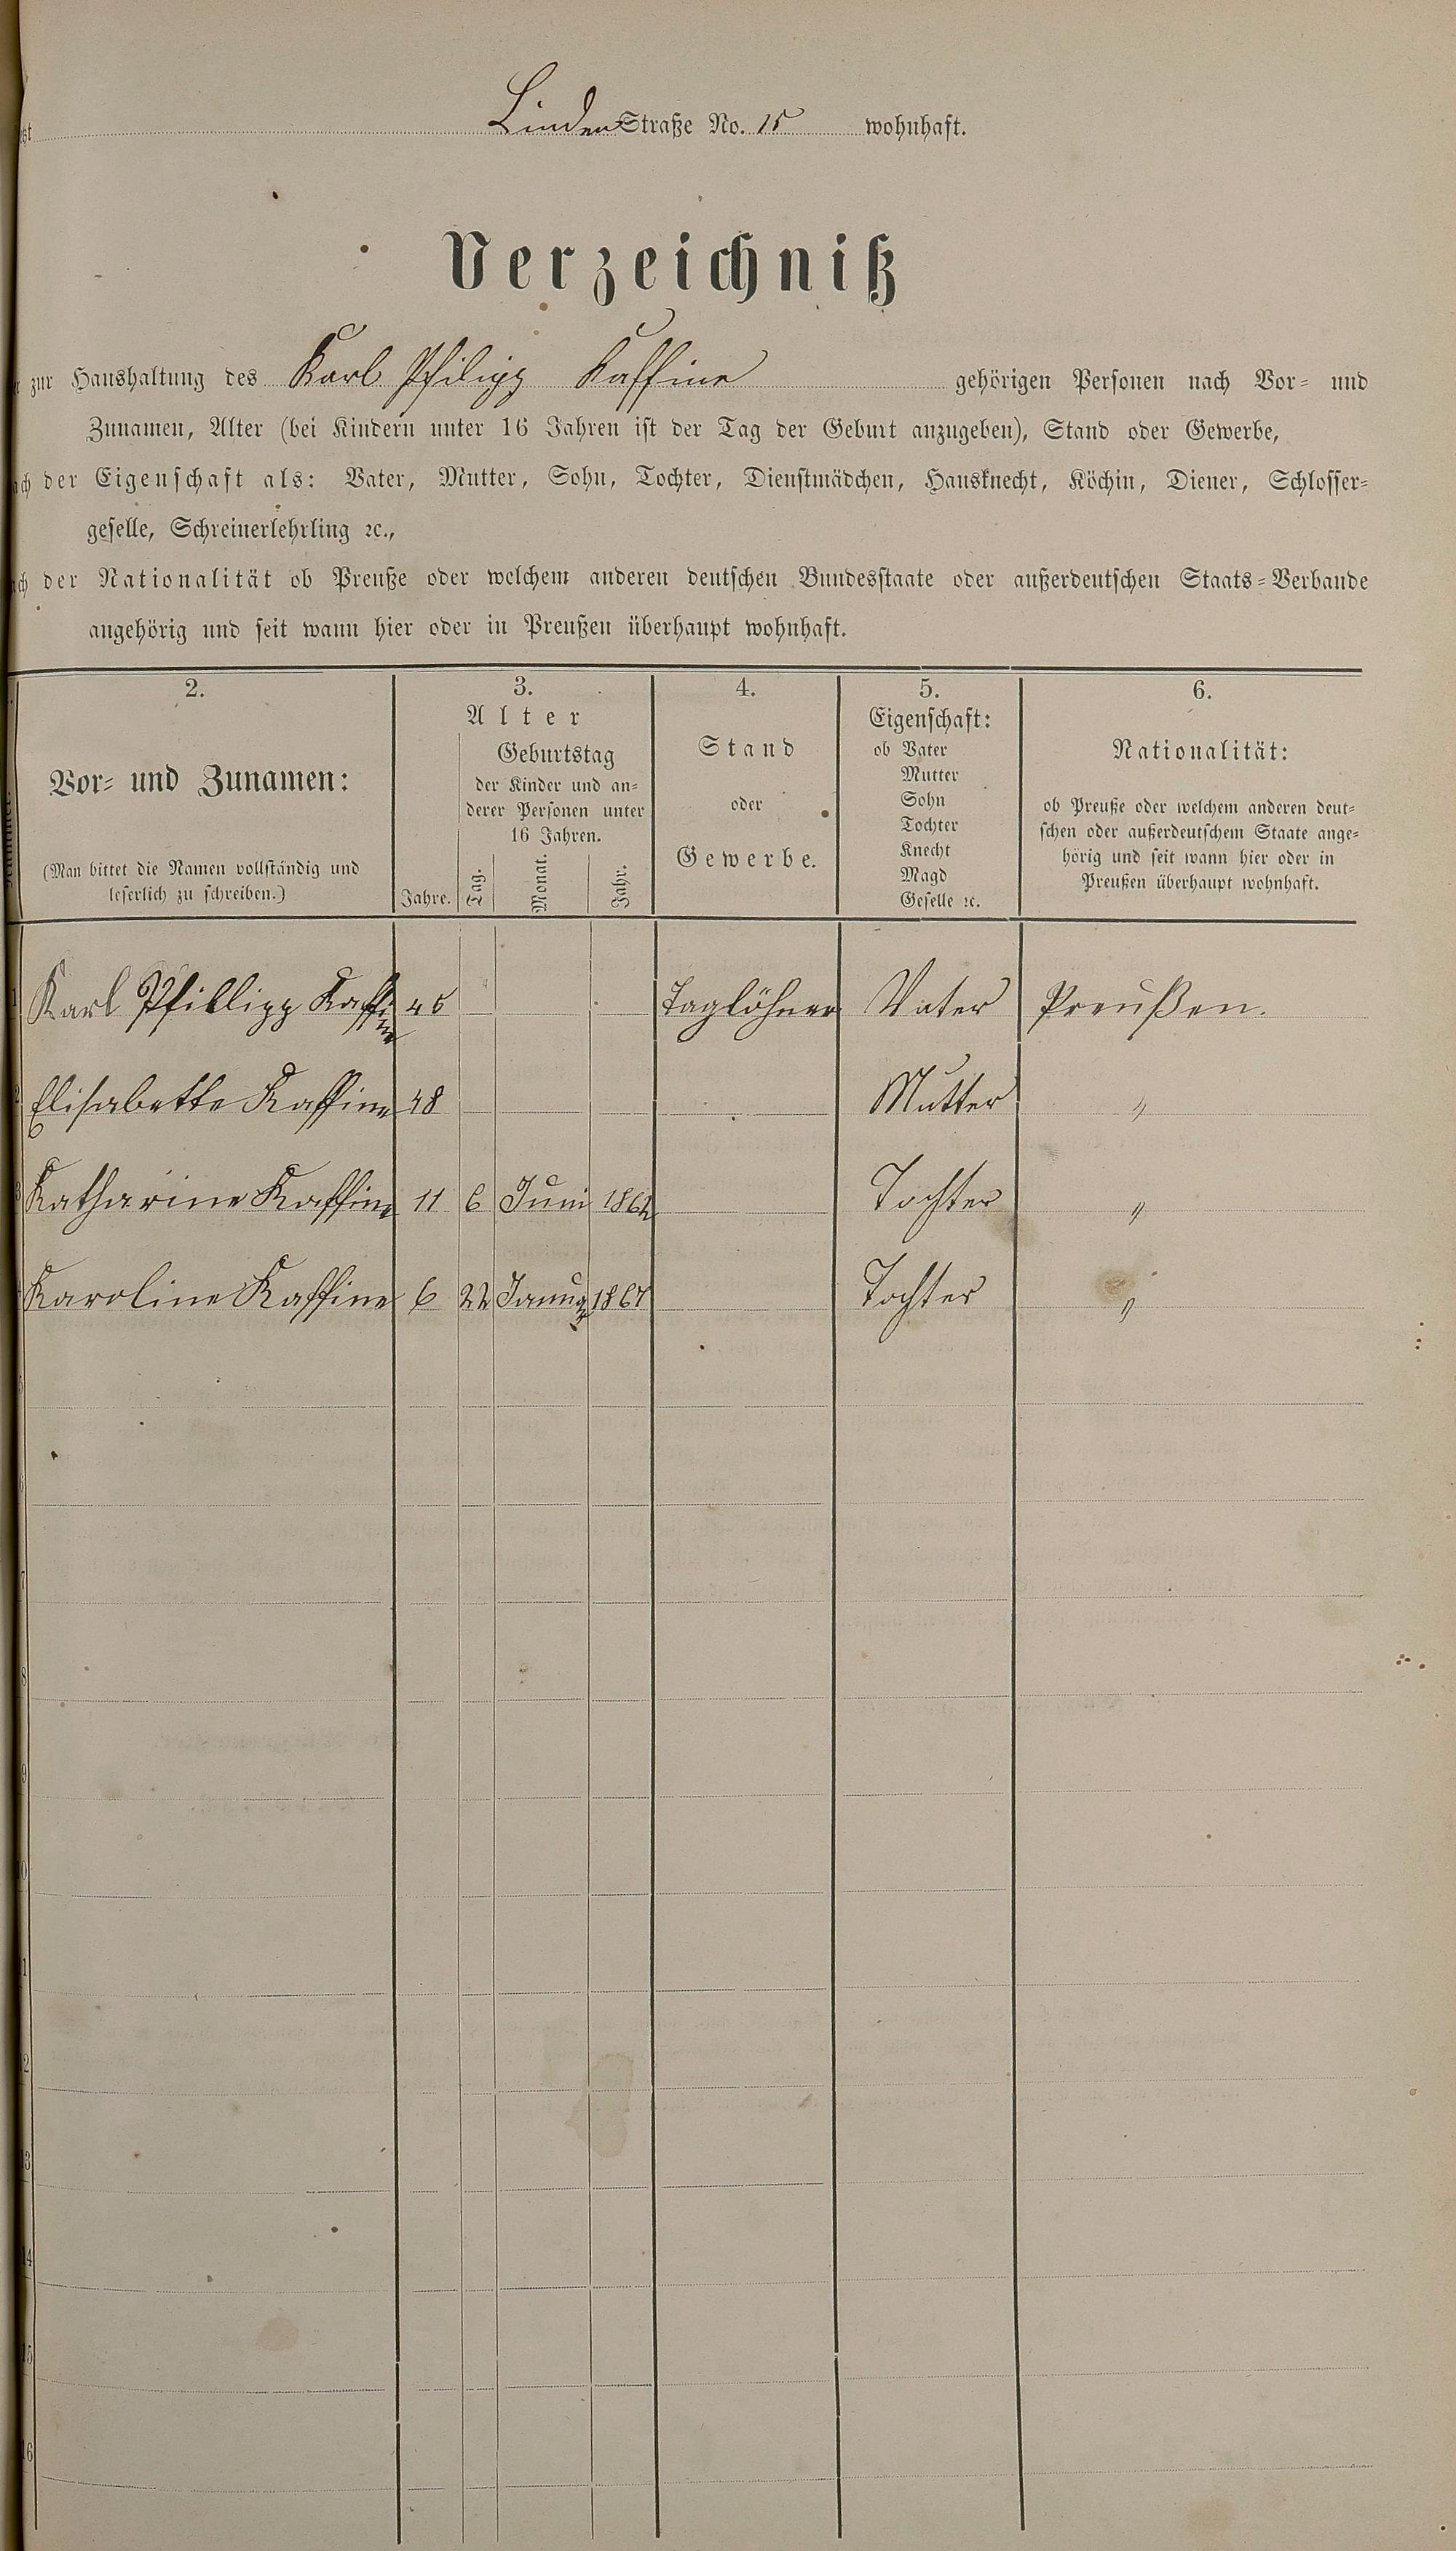 Linden Straße No. 15 wohnhaft.
Verzeichniß
zur Haushaltung des Karl Philipp Kaffine gehörigen Personen nach Vor- und
Zunamen, Alter (bei Kindern unter 16 Jahren ist der Tag der Geburt anzugeben), Stand oder Gewerbe,
der Eigenschaft als: Vater, Mutter, Sohn, Tochter, Dienstmädchen, Hausknecht, Köchin, Diener, Schlosser-
geselle, Schreinerlehrling ꝛc.,
der Nationalität ob Preuße oder welchem anderen deutschen Bundesstaate oder außerdeutschen Staats-Verbande
angehörig und seit wann hier oder in Preußen überhaupt wohnhaft.
2. 3. 4. 5. 6.
Vor- und Zunamen:
(Man bittet die Namen vollständig und
leserlich zu schreiben.)
Alter
Geburtstag
der Kinder und an-
derer Personen unter
16 Jahren.
Jahre. Tag. Monat. Jahr.
Stand
oder
Gewerbe.
Eigenschaft:
ob Vater
Mutter
Sohn
Tochter
Knecht
Magd
Geselle ꝛc.
Nationalität:
ob Preuße oder welchem anderen deut-
schen oder außerdeutschem Staate ange-
hörig und seit wann hier oder in
Preußen überhaupt wohnhaft.
Karl Phillipp Kaffine Taglöhner Vater Preußen.
Elisabetha Kaffine 48 Mutter "
Katharine Kaffine 11 6 Juni 1862 Tochter "
Karoline Kaffine 6 22 Januar 1867 Tochter "
5
6
7
8
9
10
11
12
13
14
15
16